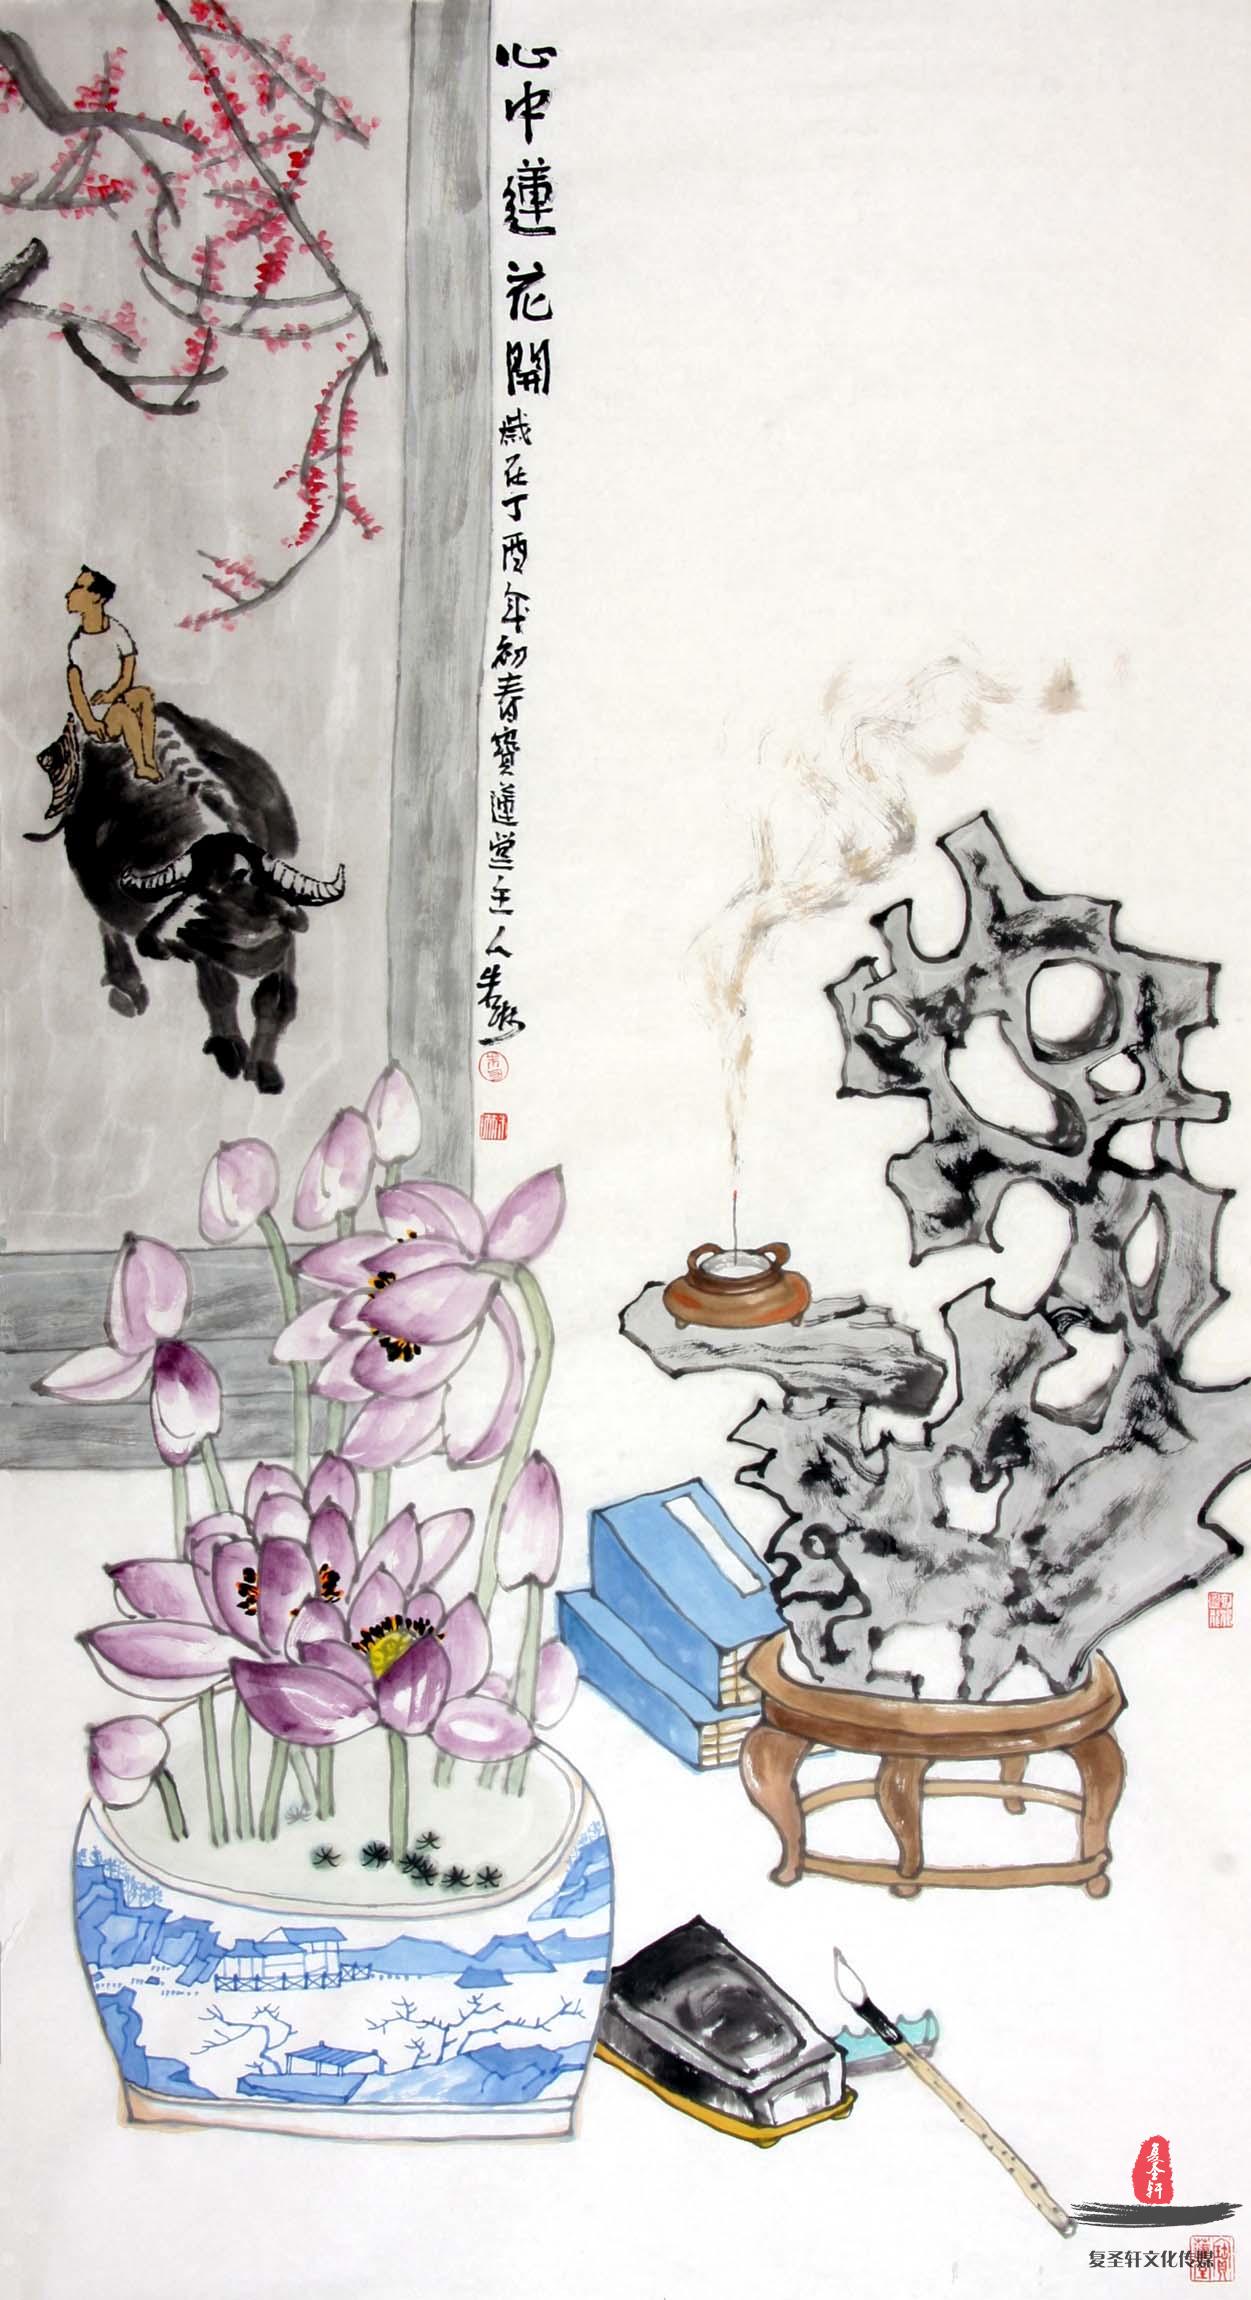 心中蓮花開
歲在丁酉年初春寶蓮堂主人朱
复圣轩
复圣轩文化传媒